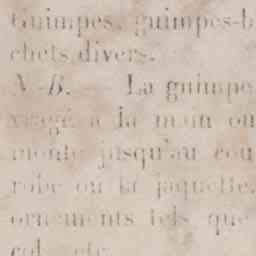 Guimpes, guimpes-b
chets divers.
N.-B. La guimpe
à la main ou
monte jusqu'au cou
robe ou la jaquette.
ornements tels que
col, etc.